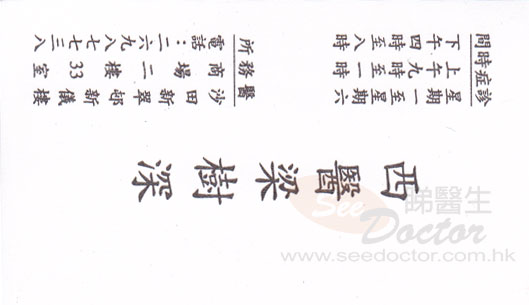 西醫梁樹深
診症時間
星期一至星期六
上午九時至一時
下午四時至八時
醫務所
沙田新翠邨新儀樓
商場二樓33室
電話：二六九八七七三八
See
睇醫生
Doctor
www.seedoctor.com.hk